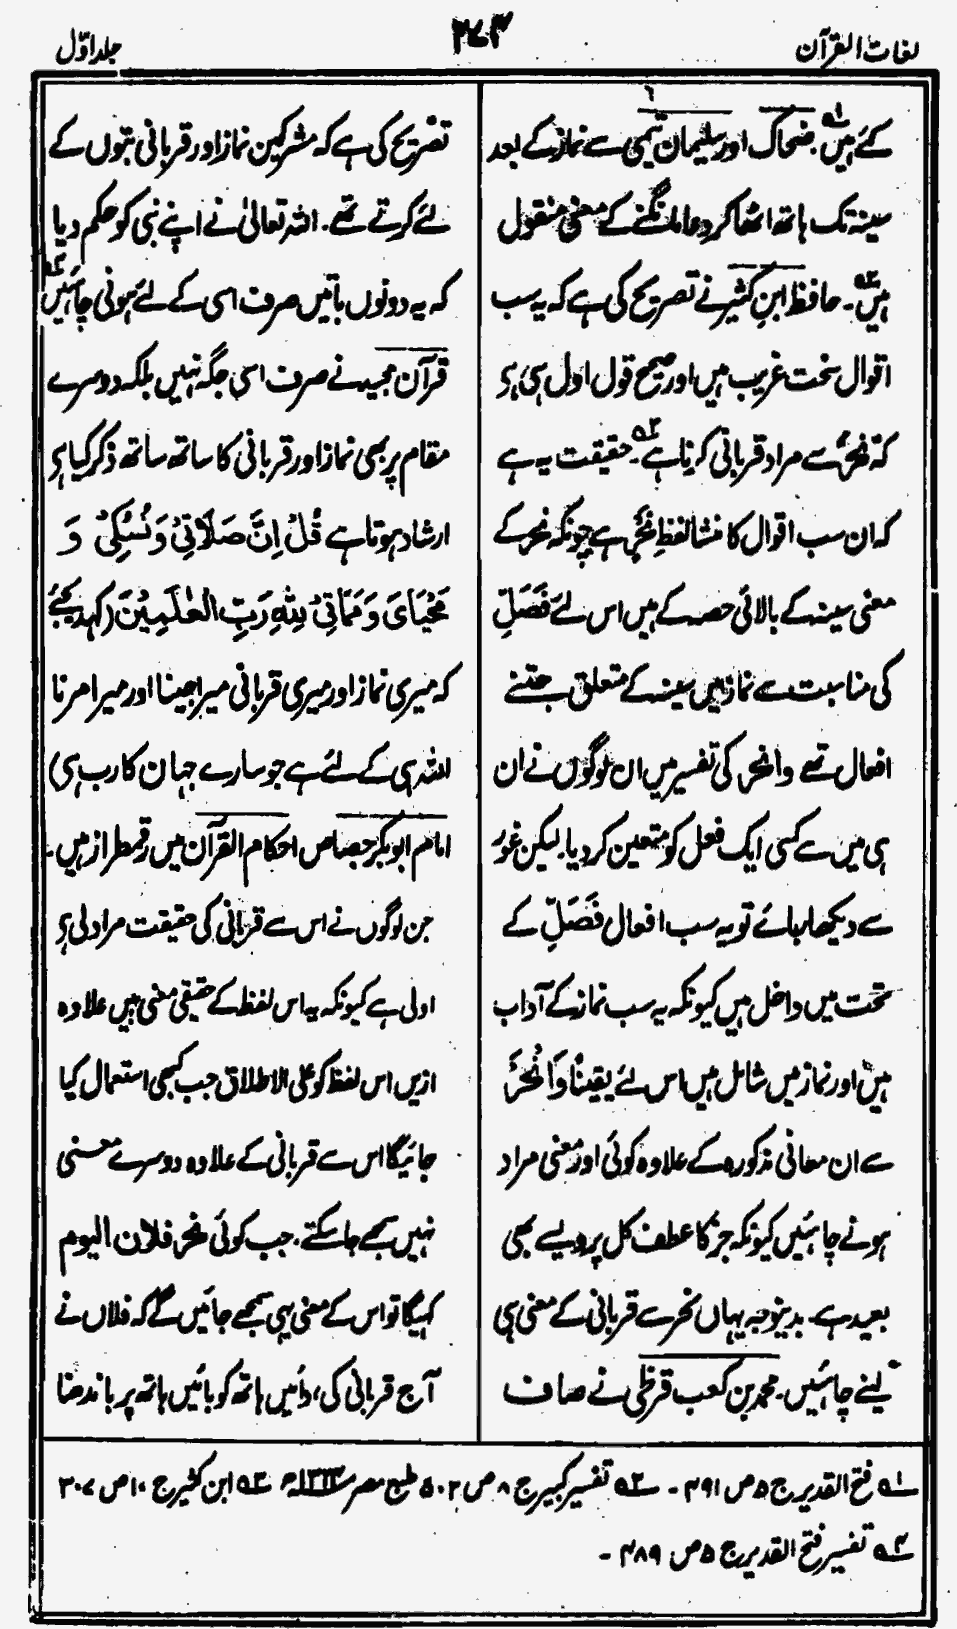 لغات القرآن
۲۷۳
جلد اوّل
گئے ہیں۱؎ ضحاک اور سلیمان تیمی سے نماز کے بعد
سینہ تک ہاتھ اٹھا کر دعا مانگنے کے معنی منقول
ہیں۲؎۔ حافظ ابن کثیر نے تصریح کی ہے کہ یہ سب
اقوال سخت غریب ہیں اور صحیح قول اول ہی ہے
کہ نحر سے مراد قربانی کرنا ہے۳؎۔ حقیقت یہ ہے
کہ ان سب اقوال کا منشا لفظِ نحر ہے چونکہ نحر کے
معنی سینہ کے بالائی حصہ کے ہیں اس لئے فَصَلِّ
کی مناسبت سے نماز میں سینہ کے متعلق جتنے
افعال تھے وانحر کی تفسیر میں ان لوگوں نے ان
ہی میں سے کسی ایک فعل کو متعین کر دیا۔ لیکن غور
سے دیکھا جائے تو یہ سب افعال فَصَلِّ کے
تحت میں داخل ہیں کیونکہ یہ سب نماز کے آداب
ہیں اور نماز میں شامل ہیں اس لئے یقینًا وَانْحَرْ
سے ان معانی مذکورہ کے علاوہ کوئی اور معنی مراد
ہونے چاہئیں کیونکہ جز کا عطف کل پر ویسے بھی
بعید ہے۔ بدینوجہ یہاں نحر سے قربانی کے معنی ہی
لینے چاہئیں۔ محمد بن کعب قرظی نے صاف
تصریح کی ہے کہ مشرکین نماز اور قربانی بتوں کے
لئے کرتے تھے۔ اللہ تعالیٰ نے اپنے نبی کو حکم دیا
کہ یہ دونوں باتیں صرف اسی کے لئے ہونی چاہئیں۴؎
قرآن مجید نے صرف اسی جگہ نہیں بلکہ دوسرے
مقام پر بھی نماز اور قربانی کا ساتھ ساتھ ذکر کیا ہے
ارشاد ہوتا ہے قُلْ اِنَّ صَلَاتِیْ وَنُسُکِیْ وَ
مَحْیَایَ وَمَمَاتِیْ لِلّٰهِ رَبِّ الْعٰلَمِیْنَ (کہدیجئے
کہ میری نماز اور میری قربانی میرا جینا اور میرا مرنا
اللہ ہی کے لئے ہے جو سارے جہان کا رب ہے)
امام ابوبکر جصاص احکام القرآن میں رقمطراز ہیں۔
جن لوگوں نے اس سے قربانی کی حقیقت مراد لی ہے
اولی ہے کیونکہ یہ اس لفظ کے حقیقی معنی ہیں علاوہ
ازیں اس لفظ کو علی الاطلاق جب کبھی استعمال کیا
جائیگا اس سے قربانی کے علاوہ دوسرے معنی
نہیں سمجھے جا سکتے۔ جب کوئی نحر فلان الیوم
کہیگا تو اس کے معنی یہی سمجھے جائیں گے کہ فلاں نے
آج قربانی کی، دائیں ہاتھ کو بائیں ہاتھ پر باندھنا
۱؎ فتح القدیر ج ۵ ص ۴۹۱ ۔ ۲؎ تفسیر کبیر ج ۸ ص ۵۰۲ طبع مصر ۱۳۲۴ھ ۳؎ ابن کثیر ج ۱۰ ص ۳۰۷
۴؎ تفسیر فتح القدیر ج ۵ ص ۴۸۹ ۔